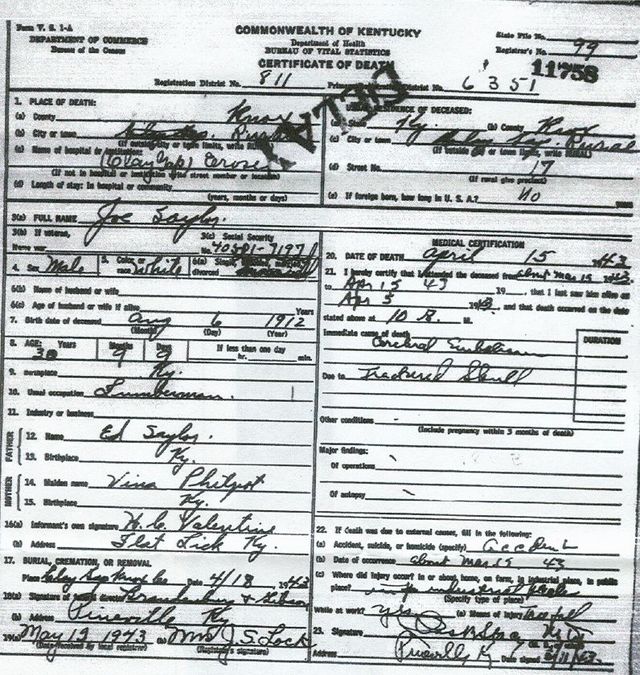 Form V. S. 1-A
DEPARTMENT OF COMMERCE
Bureau of the Census
COMMONWEALTH OF KENTUCKY
Department of Health
BUREAU OF VITAL STATISTICS
CERTIFICATE OF DEATH
State File No.
Registrar's No. 99
11758
Registration District No. 811
District No. 6351
DELAY
1. PLACE OF DEATH:
(a) County Knox
(b) City or town
(If outside city or town limits, write RURAL)
(c) Name of hospital or institution:
(If not in hospital or institution write street number or location)
(d) Length of stay: In hospital or community
(years, months or days)
RESIDENCE OF DECEASED:
(a) State Ky. (b) County Knox
(c) City or town Rural
(If outside city or town limits write RURAL)
(d) Street No. 17
(If rural give precinct)
(e) If foreign born, how long in U. S. A.? No years
3(a) FULL NAME Joe Saylor.
3(b) If veteran,
Name war
3(c) Social Security
No.
4. Sex Male 5. Color or race White 6(a) Single, divorced
6(b) Name of husband or wife
6(c) Age of husband or wife if alive Years
7. Birth date of deceased Aug 6 1912
(Month) (Day) (Year)
8. AGE: Years Months Days If less than one day
30 9 9 hr. min.
9. Birthplace Ky.
10. Usual occupation Lumberman.
11. Industry or business
FATHER
12. Name Ed Saylor.
13. Birthplace Ky.
MOTHER
14. Maiden name Vina Philpot
15. Birthplace Ky.
16(a) Informant's own signature H. C. Valentine
(b) Address Flat Lick Ky.
17. BURIAL, CREMATION, OR REMOVAL
Place Date 4/18 1943
18(a) Signature of funeral director
(b) Address Pineville Ky
19(a) May 12 1943 (b) Mrs J. S. Lock
(Date received by local registrar) (Registrar's signature)
MEDICAL CERTIFICATION
20. DATE OF DEATH April 15 1943
21. I hereby certify that I attended the deceased from about Mar 15 1943
to Apr 15 43 19, that I last saw him alive on
Apr 5 1943, and that death occurred on the date
stated above at 10 M.
Immediate cause of death
Cerebral Embolism
DURATION
Due to Fractured Skull
Other conditions
(Include pregnancy within 3 months of death)
Major findings:
Of operations
Of autopsy
22. If death was due to external causes, fill in the following:
(a) Accident, suicide, or homicide (specify) accident
(b) Date of occurrence about Mar 15 43
(c) Where did injury occur? in or about home, on farm, in industrial place, in public
place?
(Specify type of place)
While at work? yes (e) Means of injury
23. Signature
Address Pineville Ky Date signed